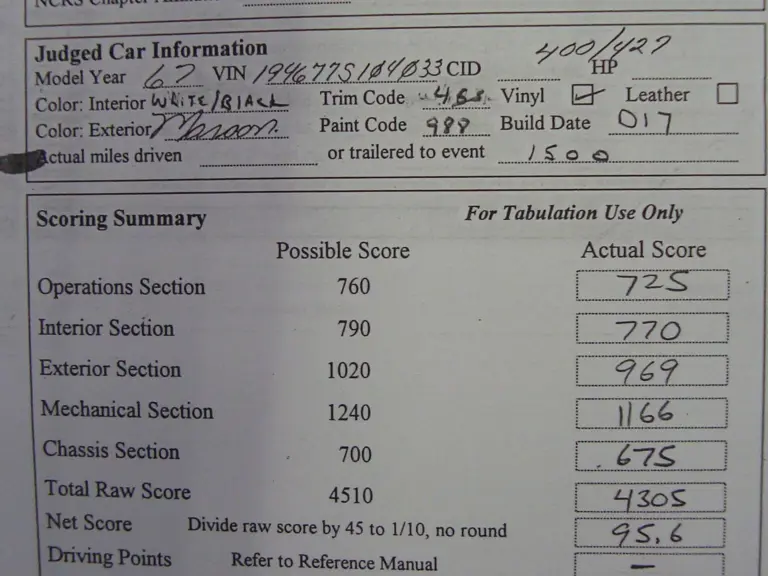 NCRS Chapter
Judged Car Information 400/427
Model Year 67 VIN 194677S104033 CID HP
Color: Interior White/Black Trim Code Vinyl ☑ Leather ☐
Color: Exterior Maroon. Paint Code 988 Build Date 017
Actual miles driven or trailered to event 1500
Scoring Summary For Tabulation Use Only
Possible Score Actual Score
Operations Section 760 725
Interior Section 790 770
Exterior Section 1020 969
Mechanical Section 1240 1166
Chassis Section 700 675
Total Raw Score 4510 4305
Net Score Divide raw score by 45 to 1/10, no round 95.6
Driving Points Refer to Reference Manual —